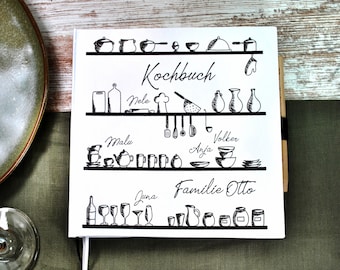 Kochbuch
Nele
Malu
Volker
Anja
Jana
Familie Otto